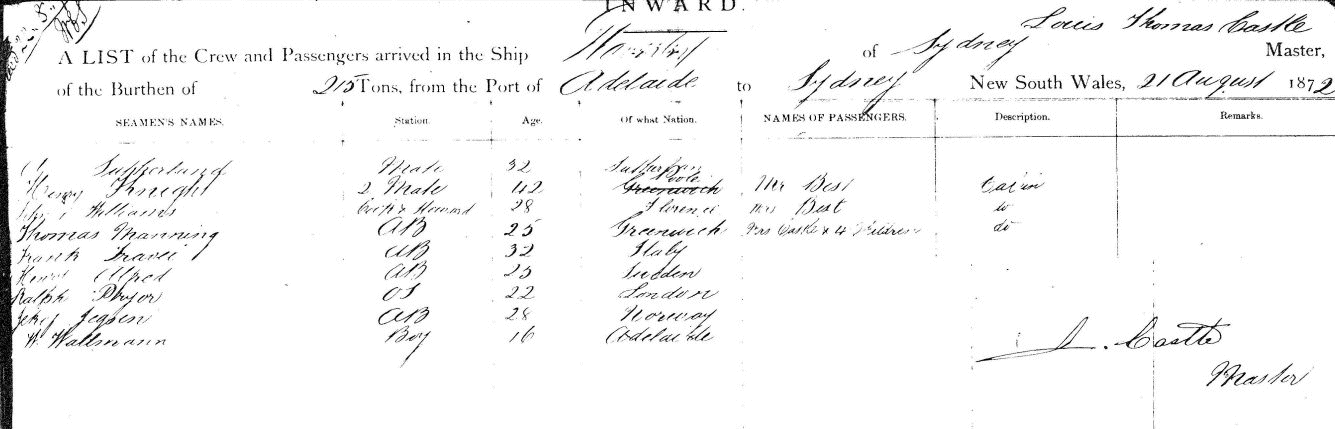 INWARD.
Louis Thomas Castle
A LIST of the Crew and Passengers arrived in the Ship of Sydney Master,
of the Burthen of 215 Tons, from the Port of Adelaide to Sydney New South Wales, 21 August 1872
SEAMEN'S NAMES. Station. Age. Of what Nation. NAMES OF PASSENGERS. Description. Remarks.
Sutherland Mate 32
Henry Knight 2 Mate 42 Poole Greenwich Mr Best Cabin
Williams Cook & Steward 28 Florence Mrs Best do
Thomas Manning AB 25 Greenwich Mrs Castle & 4 Children do
Frank AB 32 Italy
Henry Alfred AB 25 Sweden
Ralph Pryor OS 22 London
AB 28 Norway
W. Wallmann Boy 16 Adelaide
L. Castle
Master